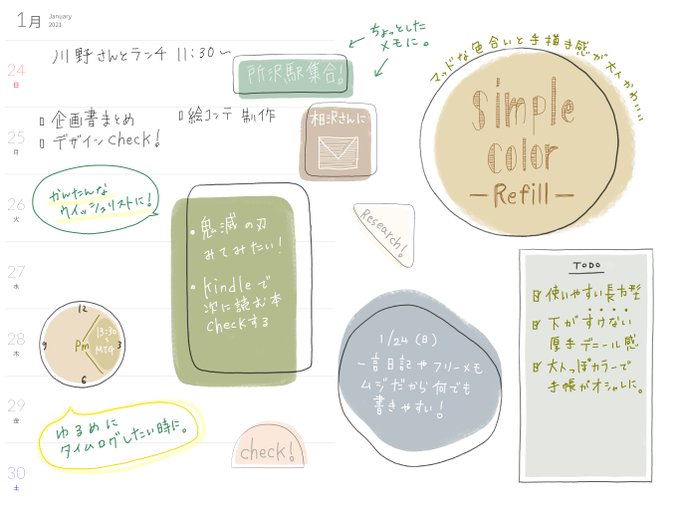 1月 January
2021
24
日
川野さんとランチ 11:30〜
所沢駅集合!
ちょっとした
メモに。
マットな色合いと手描き感が大人かわいい
simple
color
Refill
25
月
企画書まとめ
絵コンテ 制作
デザインcheck!
相沢さんに
26
火
かんたんな
ウィッシュリストに!
・鬼滅の刃
みてみたい!
・kindleで
次に読む本
checkする
Research!
27
水
28
木
12
3
6
9
Pm
13:30
〜
MTG
1/24(日)
一言日記やフリーメモ
ムジだから何でも
書きやすい!
TODO
使いやすい長方型
下がすけない
厚手デニール感
大人っぽカラーで
手帳がオシャレに。
29
金
ゆるめに
タイムログしたい時に。
check!
30
土